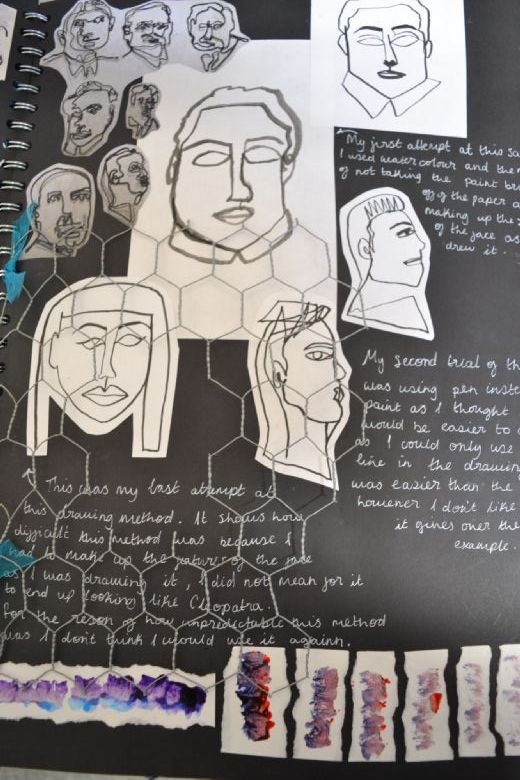 My first attempt at this sa
I used watercolour and the
of not taking the paint br
off of the paper a
making up the
of the face as
drew it.
My second trial of th
was using pen inste
paint as I thought
would be easier to
as I could only use
line in the drawing
was easier than the
however I don't like
it gives over the
example.
This was my last attempt at
this drawing method. It shows how
difficult this method was because I
had to make up the nature of the face
as I was drawing it, I did not mean for it
to end up looking like Cleopatra.
for the reson of how unpredictable this method
was I don't think I would use it againn.